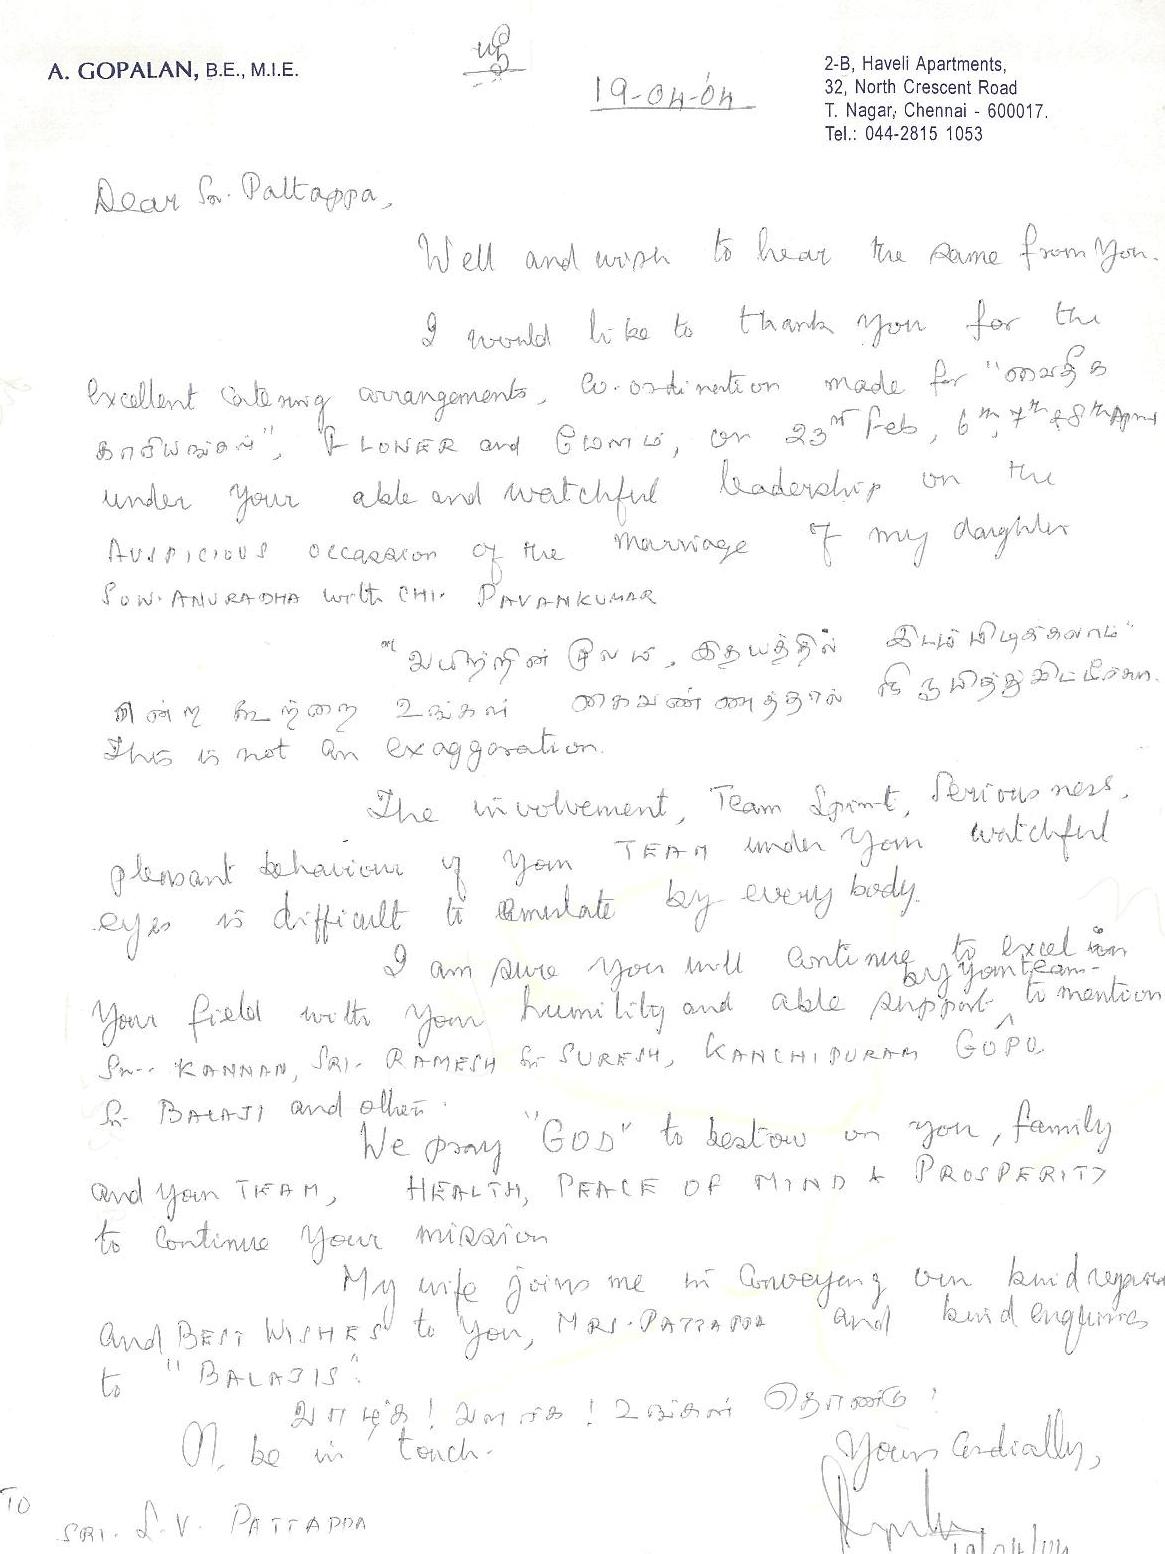 A. GOPALAN, B.E., M.I.E.
19-04-04
2-B, Haveli Apartments,
32, North Crescent Road
T. Nagar, Chennai - 600017.
Tel.: 044-2815 1053
Dear Sri. Pattappa,
Well and wish to hear the same from you.
I would like to thank you for the
excellent catering arrangements, co-ordination made for "வைதீக
காரியங்கள்", FLOWER and மேளம், on 23rd Feb, 6th, 7th & 8th April
under your able and watchful leadership on the
AUSPICIOUS occassion of the marriage of my daughter
SOW. ANURADHA with CHI. PAVANKUMAR
"வயிற்றின் மூலம், இதயத்தில் இடம் பிடிக்கலாம்"
என்ற கூற்றை உங்கள் கைவண்ணத்தால்
This is not an exaggeration.
The involvement, Team Spirit, Seriousness,
pleasant behaviour of your TEAM under your watchful
eyes is difficult to emulate by every body.
I am sure you will continue to excel in
your field with your humility and able support by your team - to mention
Sri. KANNAN, SRI. RAMESH Sri SURESH, KANCHIPURAM GOPU
Sri BALAJI and others.
We pray "GOD" to bestow on you, family
and your TEAM, HEALTH, PEACE OF MIND & PROSPERITY
to continue your mission
My wife joins me in conveying our kind regards
and BEST WISHES to you, MRS. PATTAPPA and kind enquiries
to "BALAJIS".
வாழ்க! வளர்க! உங்கள் தொண்டு!
be in touch.
Yours Cordially,
19/04/04
TO
SRI. L.V. PATTAPPA